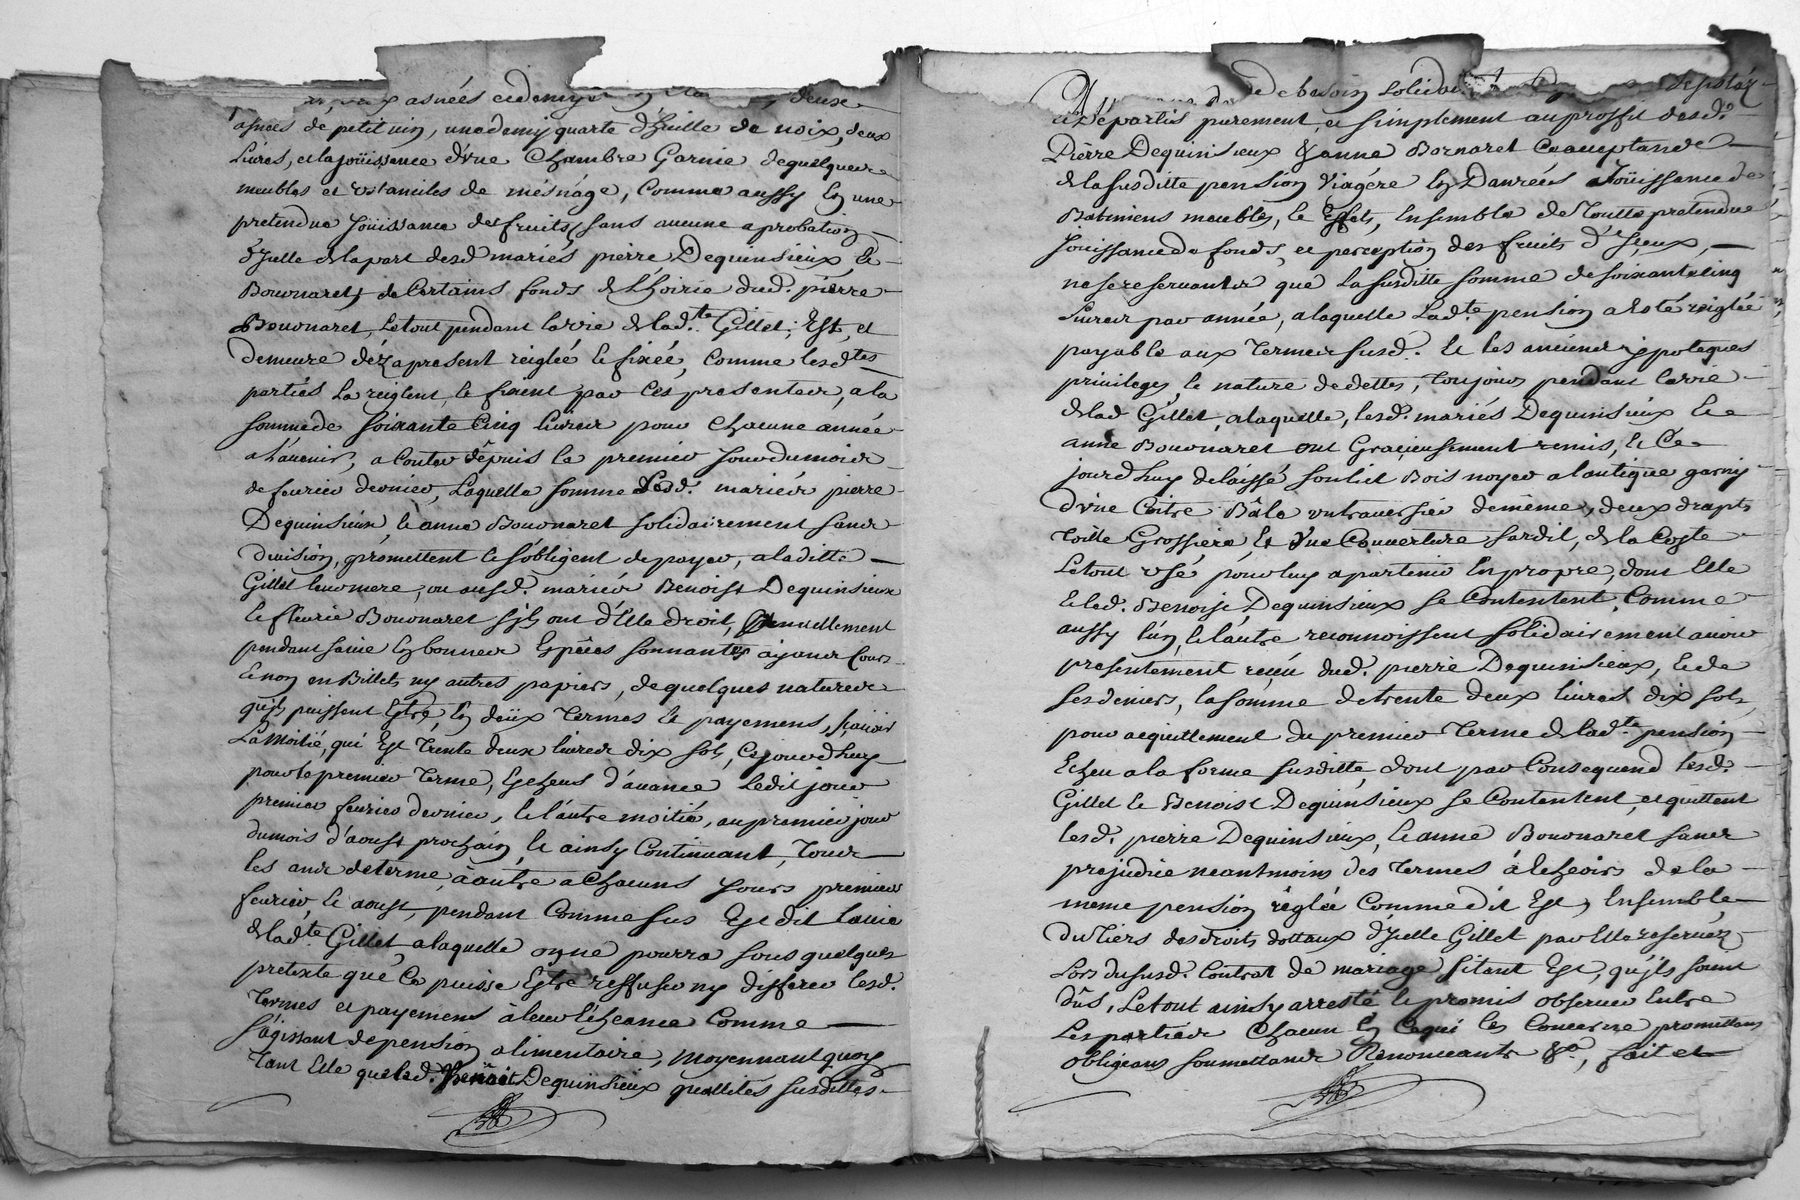 asnées et demy deux
asnées de petit vin, une demy quarte d'huille de noix, deux
Livres, et la joüissance d'une Chambre Garnie de quelques
meubles et ustanciles de mésnage, Comme aussy En une
pretendue joüissance des fruits, sans aucune aprobation
d'ycelle de la part desd. mariés pierre Dequinsieux, Et
Bouvnaret, de Certains fonds de L'hoirie dud. pierre
Bouvnaret, Le tout pendant la vie de lad.te Gillet, Est, et
demeure déz a present reiglée Et fixée, Comme lesd.tes
partiés La reiglent, Et fixent par Ces presentes, a la
somme de soixante Cinq Livres pour Chacune année
a L'avenir, a Conter dépuis le premier jour du mois
de fevrier dernier, Laquelle somme Lesd. mariés pierre
Dequinsieux, Et anne Bouvnaret solidairement sans
division, promettent Et s'obligent de payer, a laditte
Gillet leur mere, ou ausd. mariés Benoist Dequinsieux
Et fleurie Bouvnaret s'ils ont d'Elle droit, annuellement
pendant sa vie En bonnes Espéces sonnantes ayant Cours
Et non en Billets ny autres papiers, de quelques natures
qu'ils puissent Estre, En deüx Termes Et payemens, sçavoir
La Moitié, qui Est Trente deux livres dix sols, Ce jourd'huy
pour le premier Terme, Echeus d'avance Ledit jour
premier fevrier dernier, Et l'autre moitié, au premier jour
du mois d'aoust prochain, Et ainsy Continuant, Tous
les ans de terme à autre a Chacuns jours premier
fevrier, Et aoust, pendant Comme sus Est dit la vie
de lad.te Gillet a laquelle on ne pourra sous quelques
pretexte que Ce puisse Estre reffuser ny differer lesd.
Termes et payemens à leur Echeance Comme
s'agissant de pension alimentaire, Moyennant quoy
Tant Elle que led. Benoit Dequinsieux quallités susdittes
de besoin solidai
departis purement, et simplement au proffit desd.
Pierre Dequinsieux & anne Bornaret Ceacceptans de
de la susditte pension Viagére En Danrées Joüissance de
Batimens meubles, Et Effets, Ensemble de Toutte pretendue
Joüissance de fonds, et perception des fruits d'Yceux,
ne se reservant que La susditte somme de soixante Cinq
Livres par année, a laquelle Lad.te pension a Esté reiglée
payable aux Termes susd. Et les anciens ypoteques
privileges, Et nature de dettes, Toujours pendant la vie
de lad Gillet, a laquelle, lesd. mariés Dequinsieux Et
anne Bouvnaret ont Gracieusement remis, Et Ce
jourd'huy delaissé son lict Bois noyer a l'antique garny
d'une Coitre Bâle un traversier de même, deux draps
Toille Grossiere, Et Une Couverture sardit, de la Coste
Le tout usé pour luy apartenir En propre, dont Elle
Et led. Benoist Dequinsieux se Contentent, Comme
aussy l'un, Et l'autre reconnoissent solidairement avoir
presentement reçeu dud. pierre Dequinsieux, Et de
ses deniers, la somme de trente deux livres dix sols,
pour acquittement du premier Terme de lad.te pension
Echeu a la forme susditte, dont par Consequend lesd.
Gillet Et Benoist Dequinsieux se Contentent, et quittent
lesd. pierre Dequinsieux, Et anne Bouvnaret sans
prejudice neantmoins des Termes à Echeoirs de la
meme pension réglée Comme dit Est, Ensemble
du Tiers des droits dottaux d'ycelle Gillet par Elle reservéz
Lors du susd. Contrat de mariage, si tant Est, qu'ils soint
dûs, Le tout ainsy arresté Et promis observer Entre
Les parties Chacun En Ce qui les Concerne promettans
obligeans soumettans Renonceants &a, fait et